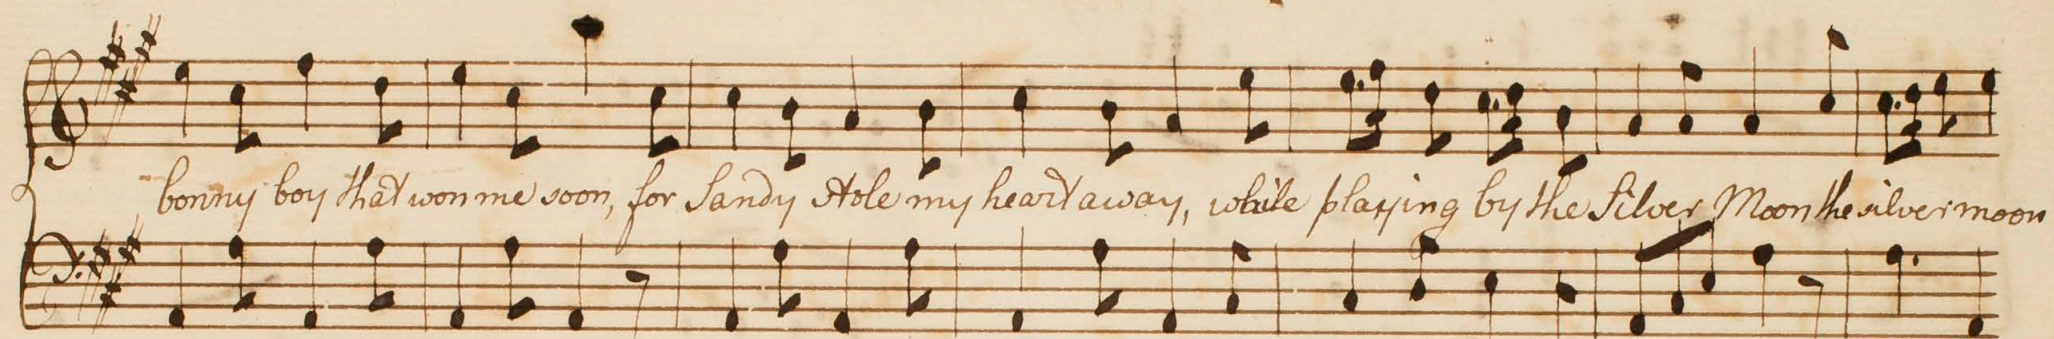 bonny boy that won me soon, for Sandy Stole my heart away, while playing by the Silver Moon the silver moon